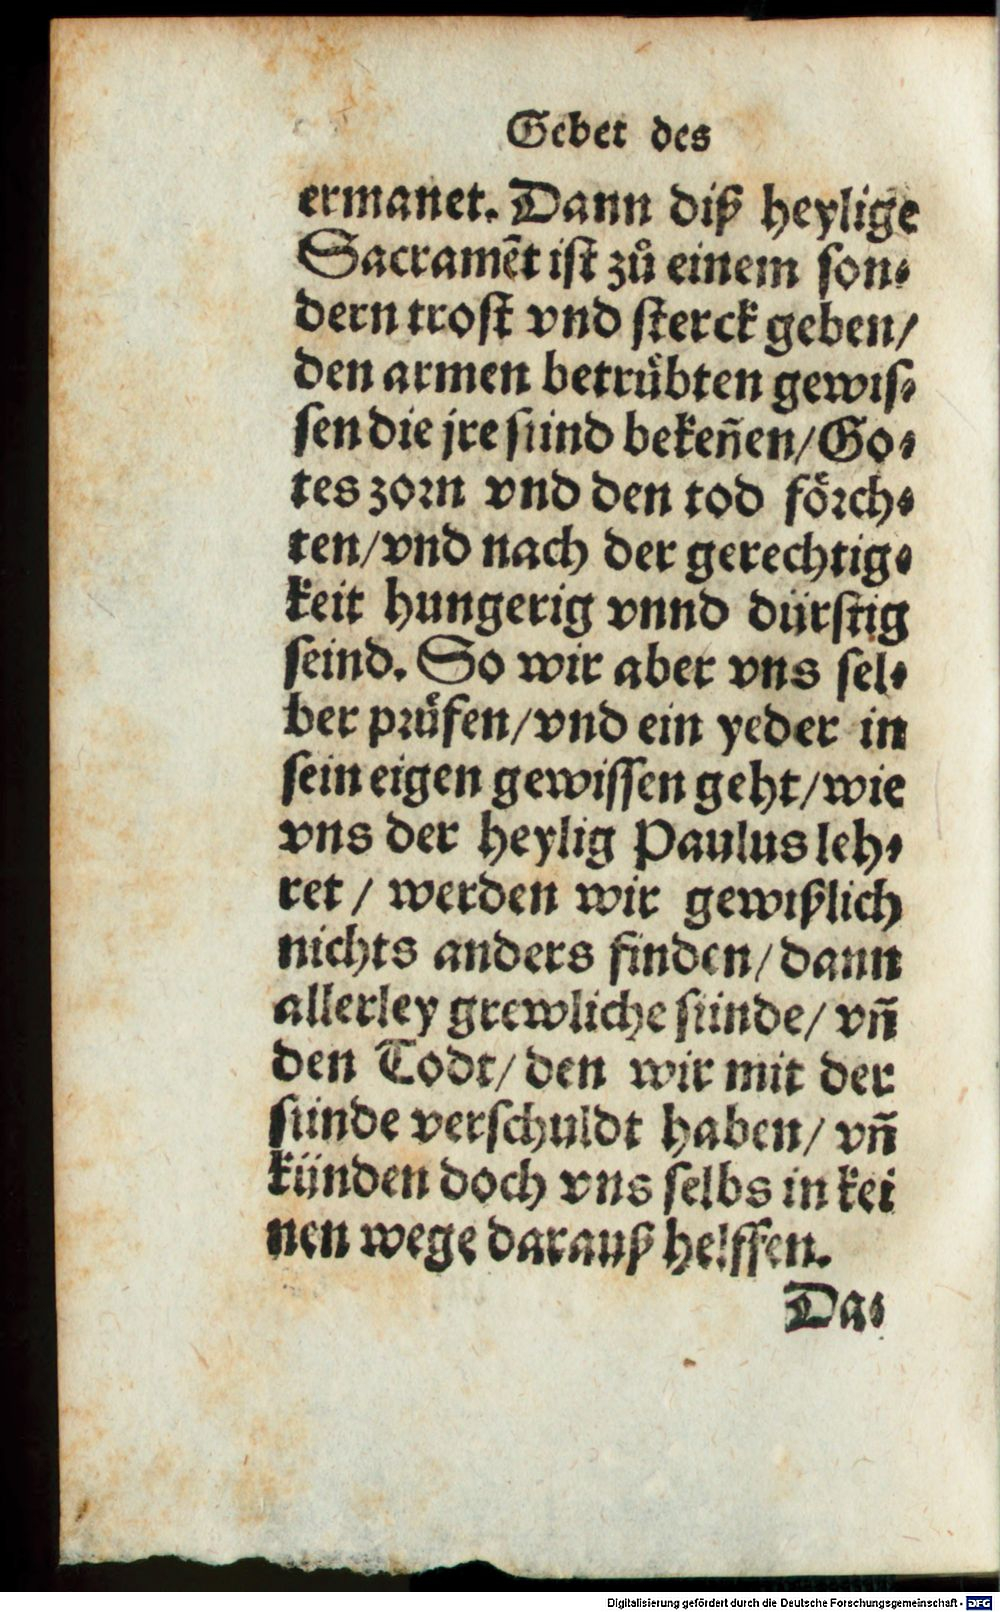 Gebet des
ermanet. Dann diß heylige
Sacramēt ist zů einem son⸗
dern trost vnd sterck geben/
den armen betrůbten gewis⸗
sen die jre sünd bekeñen/ Go⸗
tes zorn vnd den tod fo᷑rch⸗
ten/ vnd nach der gerechtig⸗
keit hungerig vnnd dürstig
seind. So wir aber vns sel⸗
ber prüfen/ vnd ein yeder in
sein eigen gewissen geht/ wie
vns der heylig Paulus leh⸗
ret / werden wir gewißlich
nichts anders finden/ dann
allerley grewliche sünde/ vñ
den Todt/ den wir mit der
sünde verschuldt haben/ vñ
künden doch vns selbs in kei
nen wege darauß helffen.
Da⸗
Digitalisierung gefördert durch die Deutsche Forschungsgemeinschaft - DFG